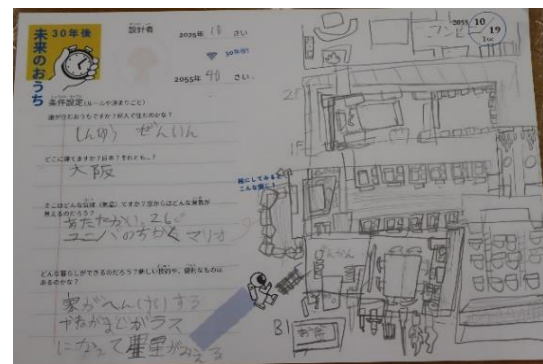 未来のおうち
30年後
設計者
2025年 10 さい
30年後!
2055年 40 さい
条件設定(ルールや決まりごと)
誰が住むおうちですか?何人で住むのかな?
しんゆう ぜんいん
どこに建てますか?日本?それとも…?
大阪
そこはどんな気候(気温)ですか?窓からはどんな景色が
見えるのだろう?
あたたかい、26°
ユニバのちかく マリオ
どんな暮らしができるのだろう?新しい技術や、便利なものは
あるのかな?
家がへんけいする
やねがまどガラス
になって星がみえる
絵にしてみると
こんな感じ!
2055
10/19
コンビニ
2F
1F
げんかん
B1